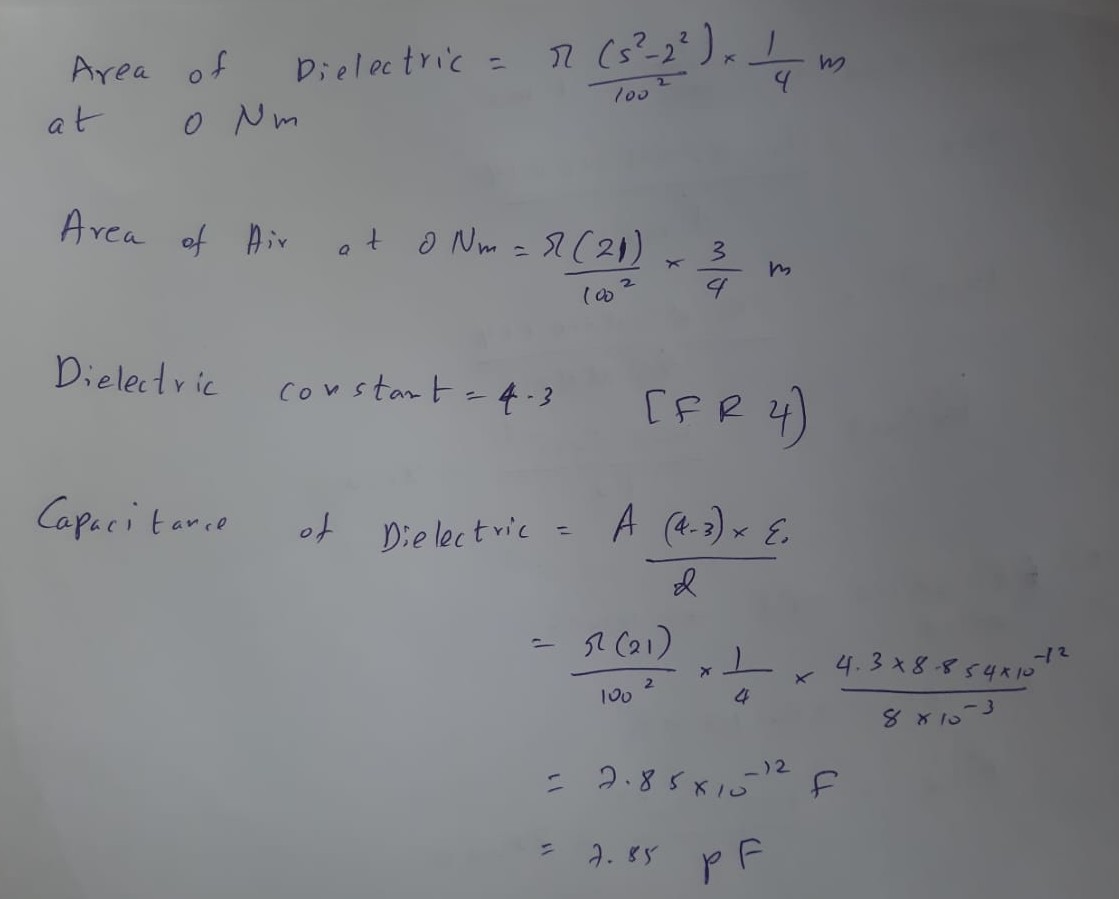 Area of Dielectric = π (5²-2²)/100² × 1/4 m
at 0 Nm
Area of Air at 0 Nm = π(21)/100² × 3/4 m
Dielectric constant = 4.3 [FR 4)
Capacitance of Dielectric = A (4.3) × ε₀/d
= π(21)/100² × 1/4 × 4.3 × 8.854 × 10⁻¹²/8 × 10⁻³
= 7.85 × 10⁻¹² F
= 7.85 pF